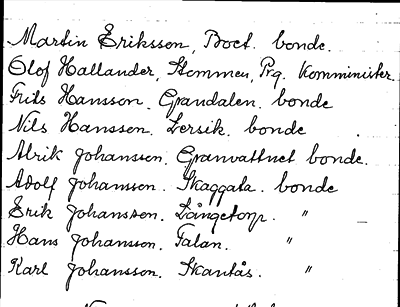 Martin Eriksson, Boet. bonde.
Olof Hallander, Stommen, Prg. Komminister
Frits Hansson. Grandalen. bonde
Nils Hansson. Lersik. bonde
Alrik Johansson. Granvattnet bonde.
Adolf Johansson. Skaggata. bonde
Erik Johansson. Långetorp. "
Hans Johansson. Falan. "
Karl Johansson. Skantås. "